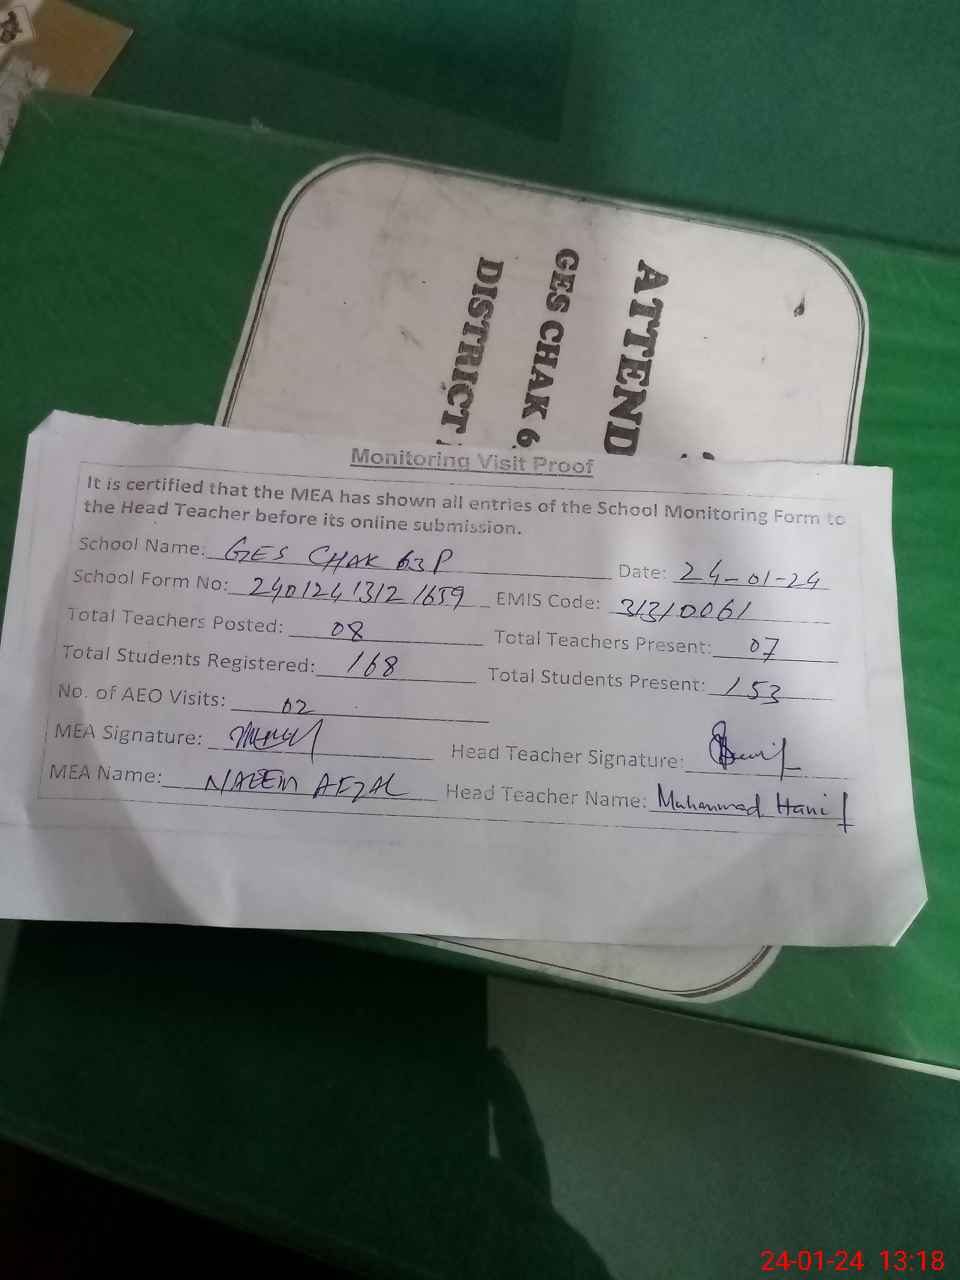 ATTEND
GES CHAK 6
DISTRICT
Monitoring Visit Proof
It is certified that the MEA has shown all entries of the School Monitoring Form to
the Head Teacher before its online submission.
School Name: GES CHAK 63P Date: 24-01-24
School Form No: 24012413121659 EMIS Code: 31310061
Total Teachers Posted: 08 Total Teachers Present: 07
Total Students Registered: 168 Total Students Present: 153
No. of AEO Visits: 02
MEA Signature: Head Teacher Signature:
MEA Name: NAEEM AFZAL Head Teacher Name: Muhammad Hanif
24-01-24 13:18